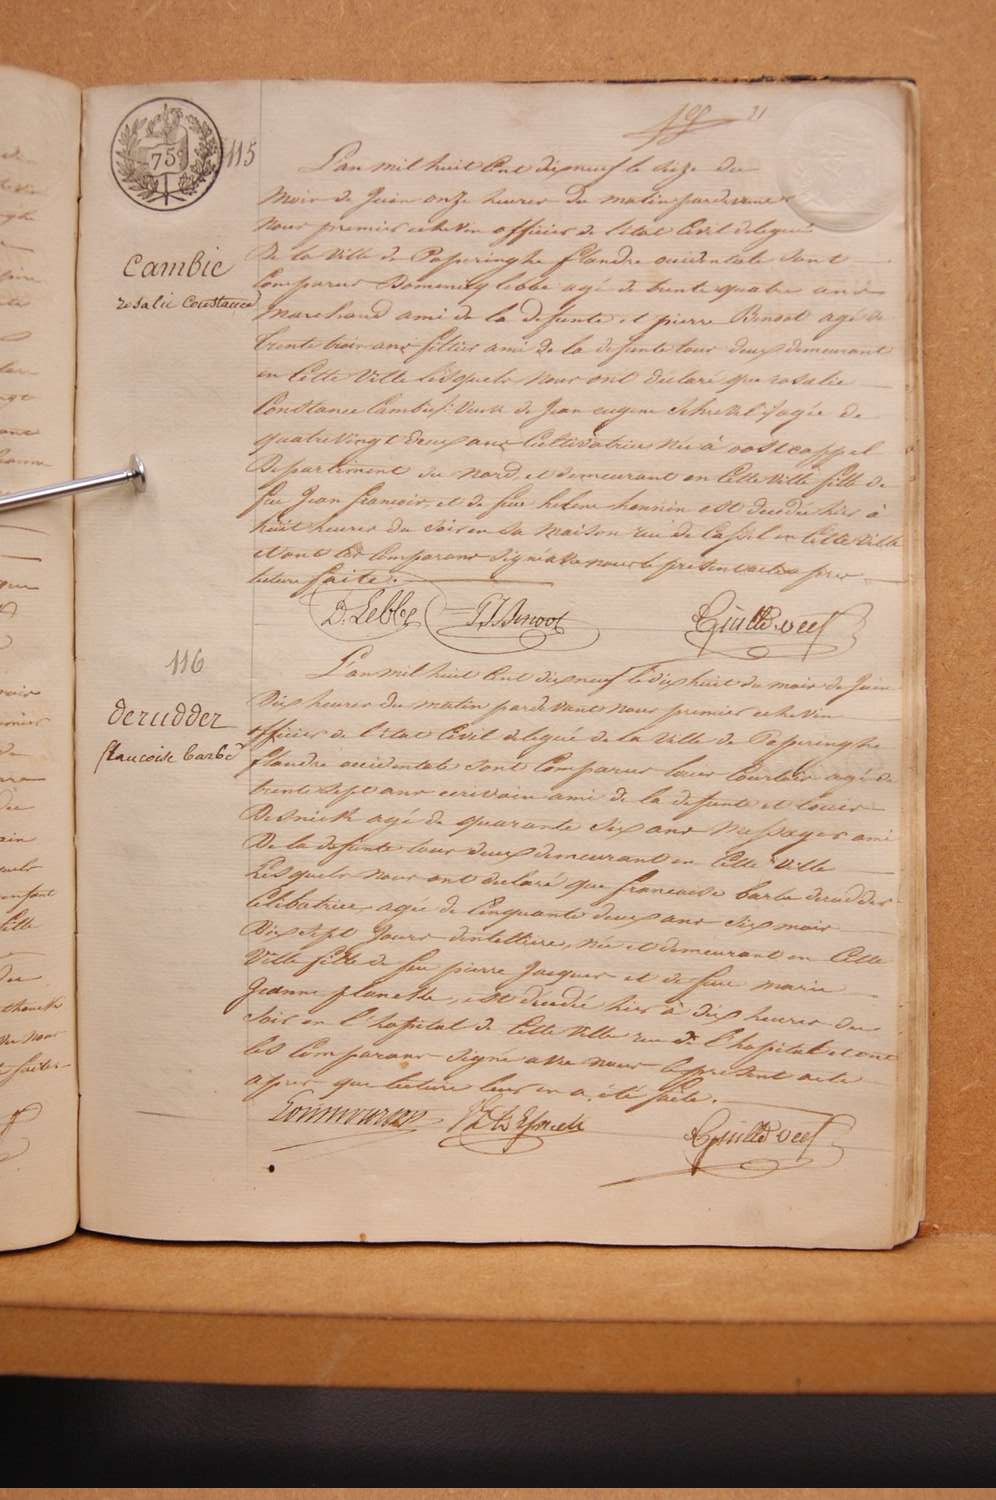 21
75c
115
L'an mil huit Cent dix neuf le Seize du
mois de Juin onze heures du matin pardevant
Nous premier echevin officier de l'etat Civil delegué
De la Ville de Poperinghe flandre occidentale sont
Comparus Domenicq lebbe agé de trente quatre ans
Marchand ami de la defunte et pierre Benoot agé de
trente trois ans fillier ami de la defunte tous deux demeurant
en Cette Ville Lesquels nous ont déclaré que rosalie
Constance Cambie veuve de Jean eugene agée de
quatre Vingt deux ans Cultivatrice née à oostcappel
Departement du nord, et demeurant en Cette Ville fille de
feu Jean francois, et de feue helene hennin est decedée hier à
huit heures du Soir en sa maison rue de Cassel en Cette Ville
et ont les Comparans Signé avec nous le present acte apres
lecture faite.
Cambie
rosalie Constance
D. Lebbe P J Benoot
116
L'an mil huit Cent dix neuf le dix huit du mois de Juin
Dix heures du matin pardevant nous premier echevin
officier de l'etat Civil delegué de la Ville de Poperinghe
flandre occidentale sont Comparus agé de
trente sept ans ecrivain ami de la defunte et Louis
agé de quarante Six ans Messager ami
De la defunte tous deux demeurant en Cette Ville
Lesquels nous ont déclaré que francoise barbe derudder
Celibatrice agée de Cinquante deux ans Six mois
Dix Sept Jours dintelliere, née et demeurant en Cette
Ville fille de feu pierre Jacques et de feue marie
Jeanne, est decedée hier à dix heures du
Soir en l'hopital de Cette Ville rue de l'hopital et ont
les Comparans Signé avec nous le present acte
apres que lecture leur en a été faite.
derudder
francoise barbe